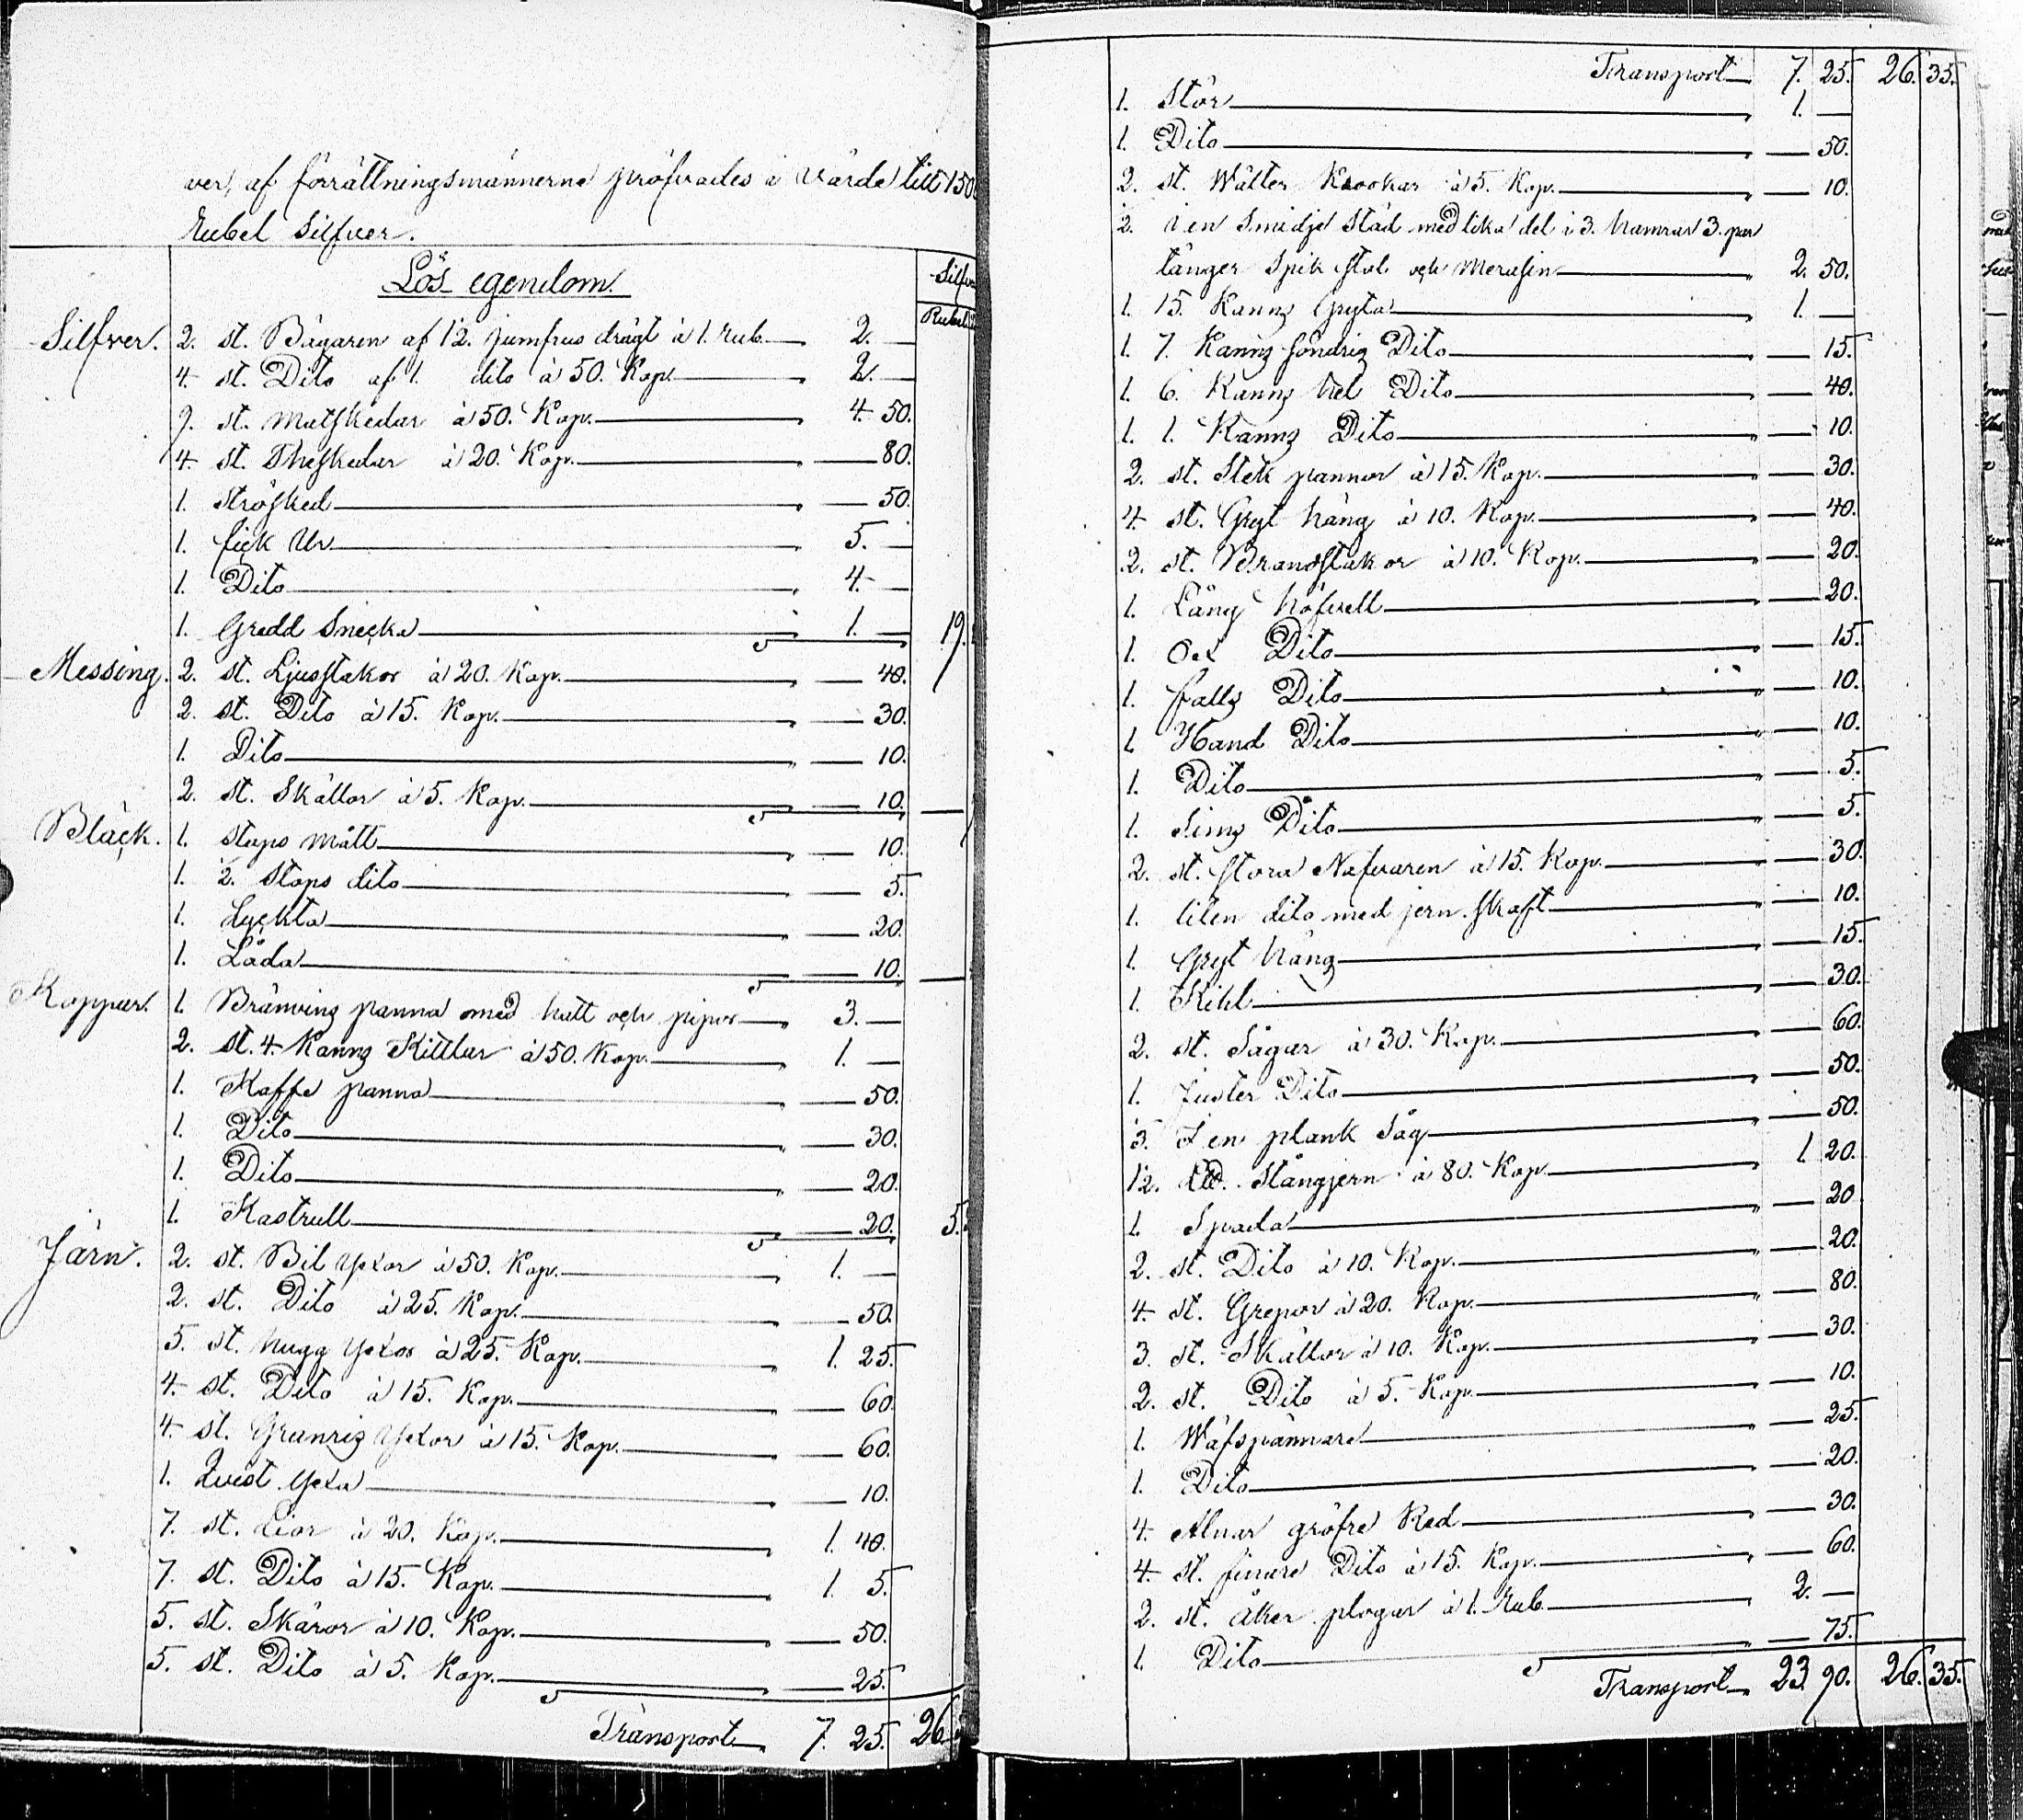 ver, af förrättningsmännerne pröfvades i värde till 150
Rubel Silfver.
Lös egendom.
Silfv
Rubel
Silfver. 2. st. Bägaren af 12. jumfrus drägt à 1. Rub. 2. —
4. st. Dito af 1. dito à 50. Kop. 2. —
9. st. Matskedar à 50. Kop. 4. 50.
4. st. Theskedar à 20. Kop. — 80.
1. Strösked — 50.
1. fick Ur 5. —
1. Dito 4. —
1. Gredd Snecka 1. — 19.
Messing. 2. st. Ljusstakor à 20. Kop. — 40.
2. st. Dito à 15. Kop. — 30.
1. Dito — 10.
2. st. Skällor à 5. Kop. — 10. —
Bläck. 1. stops mått — 10.
1. 2. stops dito — 5.
1. Lyckta — 20.
1. Låda — 10. —
Koppar. 1. Bränvins panna med hatt och pipor 3. —
2. st. 4. Kanns Kittlar à 50. Kop. 1. —
1. Kaffe panna — 50.
1. Dito — 30.
1. Dito — 20.
1. Kastrull — 20. 5.
Järn. 2. st. Bil Yxor à 50. Kop. 1. —
2. st. Dito à 25. Kop. — 50.
5. st. hugg Yxor à 25. Kop. 1. 25.
4. st. Dito à 15. Kop. — 60.
4. st. Granris Yxor à 15. Kop. — 60.
1. Qvist Yxa — 10.
7. st. Liar à 20. Kop. 1. 40.
7. st. Dito à 15. Kop. 1. 5.
5. st. Skäror à 10. Kop. — 50.
5. st. Dito à 5. Kop. — 25.
Transport 7. 25. 26.
Transport 7. 25. 26. 35.
1. Stör 1. —
1. Dito — 50.
2. st. Wälter Krookar à 5. Kop. — 10.
2. i en Smidje Städ med lika del i 3. hamrar 3. par
tänger Spik stol och 2. 50.
1. 15. Kanns Gryta 1. —
1. 7. Kanns söndrig Dito — 15.
1. 6. Kanns hel Dito — 40.
1. 1. Kanns Dito — 10.
2. st. Stek pannor à 15. Kop. — 30.
4. st. Gryt häng à 10. Kop. — 40.
2. st. Brandstakor à 10. Kop. — 20.
1. Lång höfvell — 20.
1. Ox Dito — 15.
1. falls Dito — 10.
1. Hand Dito — 10.
1. Dito — 5.
1. Sims Dito — 5.
2. st. stora Nafvaren à 15. Kop. — 30.
1. liten dito med jern skaft — 10.
1. Gryt häng — 15.
1. Kihl — 30.
2. st. Sågar à 30. Kop. — 60.
1. Juster Dito — 50.
3. I en plank Såg — 50.
12. Stångjern à 80. Kop. 1. 20.
1. Spada — 20
2. st. Dito à 10. Kop. — 20.
4. st. Grepor à 20. Kop. — 80.
3. st. Skällor à 10. Kop. — 30.
2. st. Dito à 5. Kop. — 10.
1. Wäfspännare — 25.
1. Dito — 20.
4. Alnar gröfre Ked — 30.
4. st. finare Dito à 15. Kop. — 60.
2. st. åker plogar à 1. Rub. 2. —
1. Dito — 75.
Transport 23. 90. 26. 35.